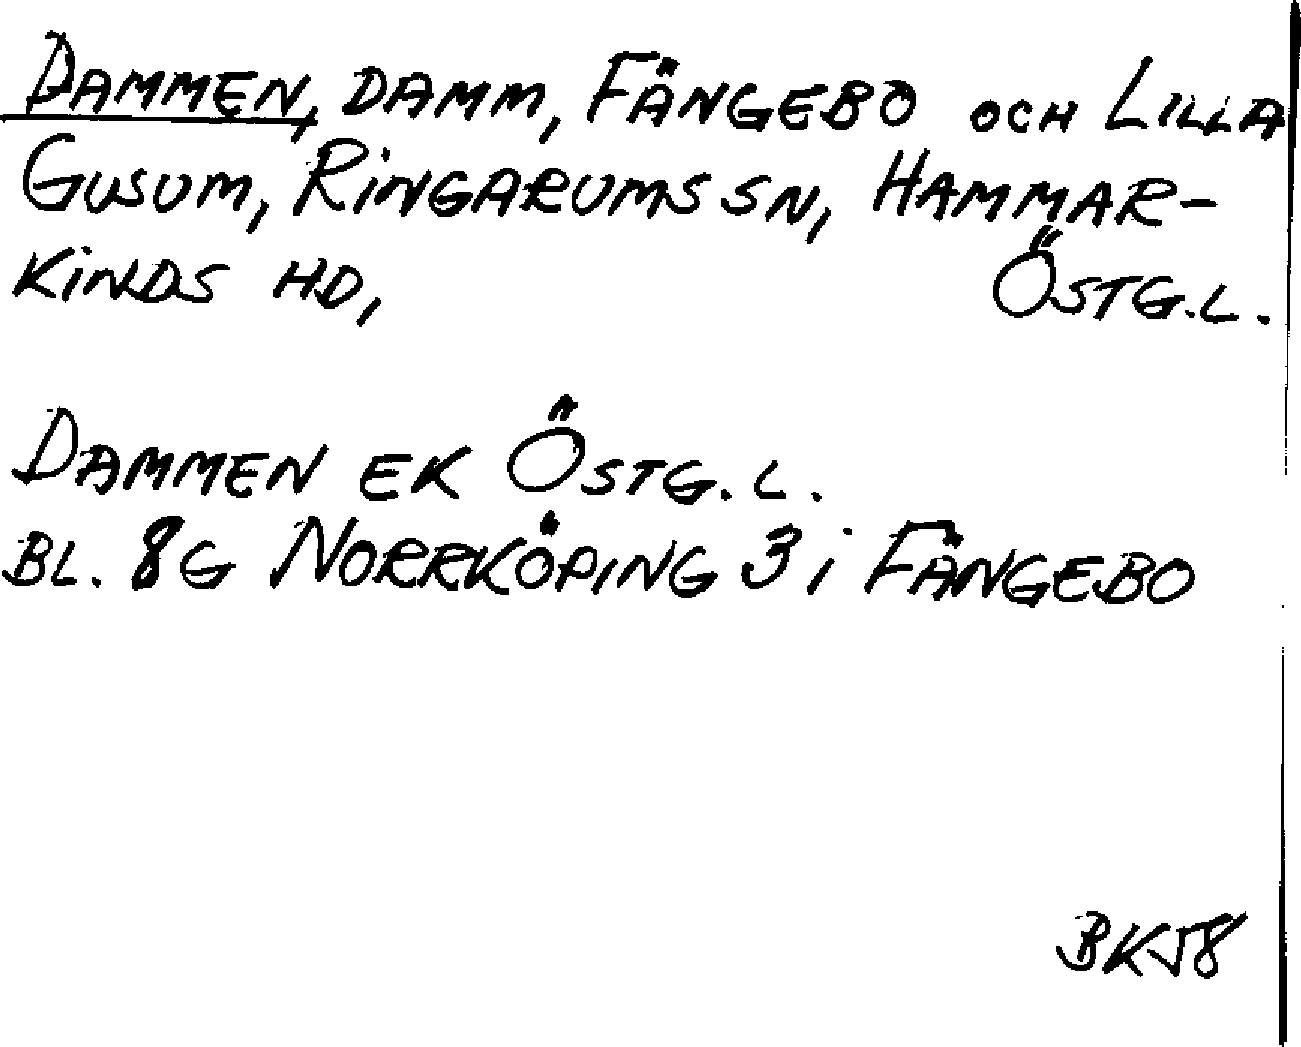 DAMMEN, DAMM, FÄNGEBO OCH LILLA
GUSUM, RINGARUMS SN, HAMMAR-
KINDS HD, ÖSTG.L.
DAMMEN EK ÖSTG.L.
BL. 8G NORRKÖPING 3i FÄNGEBO
BKJ8